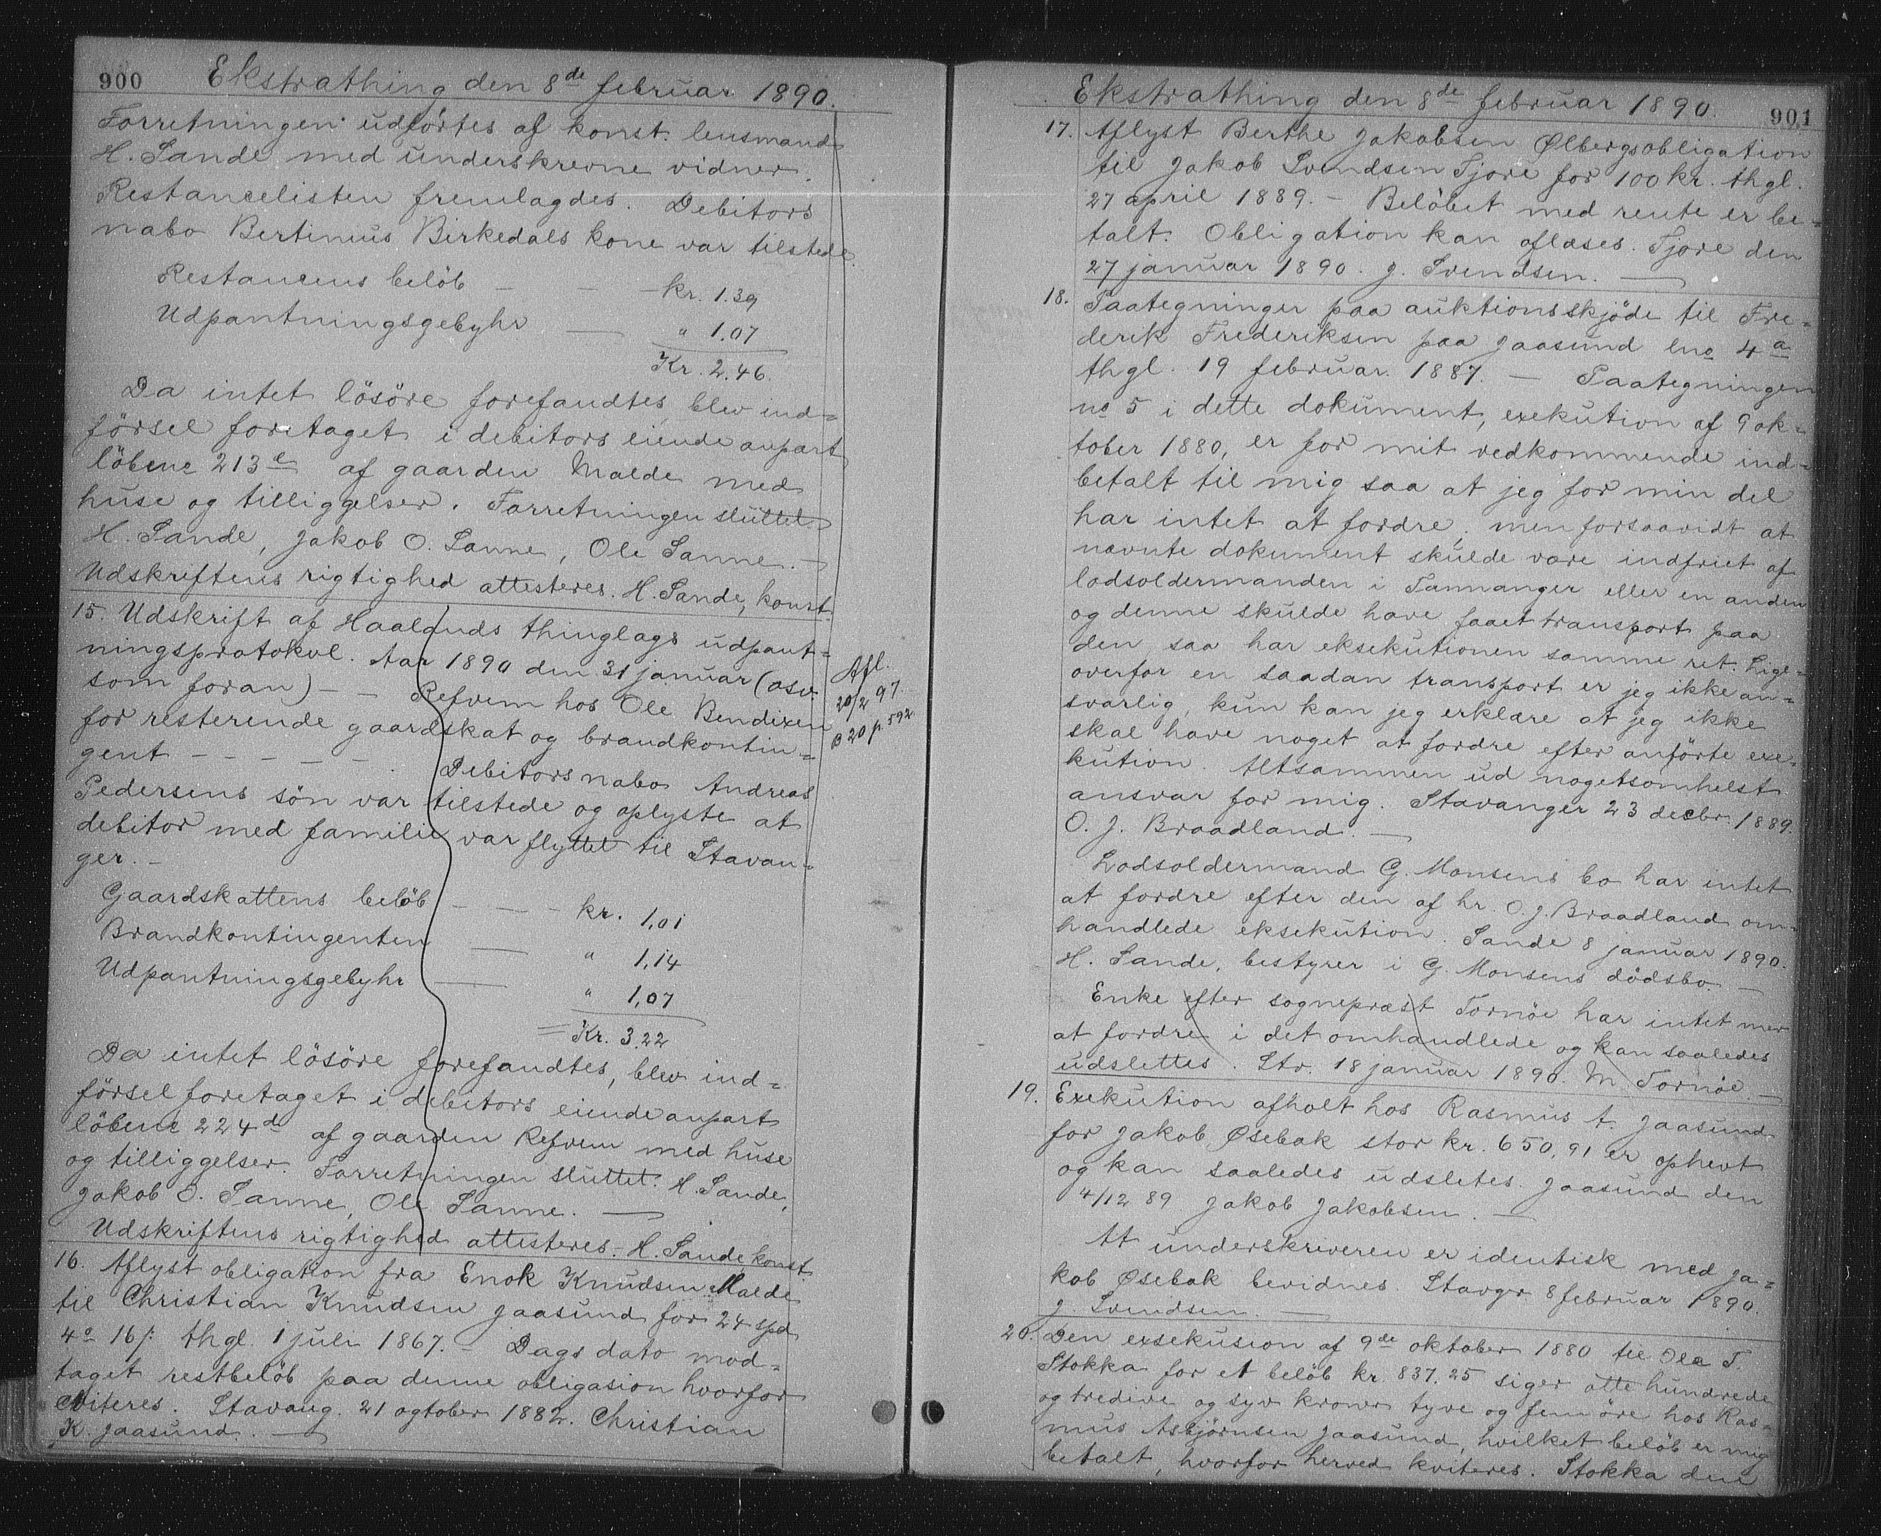 900
Ekstrathing den 8de februar 1890.
Forretningen udförtes af konst. lensmand
H. Sande med underskrevne vidner.
Restancelisten fremlagdes. Debitors
nabo Bertinius Birkedals kone var tilstede.
Restancens belöb — — — kr. 1.39
Udpantningsgebyhr — " 1.07
Kr. 2.46.
Da intet lösöre forefandtes, blev ind=
försel foretaget i debitors eiende anpart
löbene 213e af gaarden Malde med
huse og tilliggelser. Forretningen sluttet.
H. Sande, Jakob O. Sanne, Ole Sanne. —
Udskriftens rigtighed attesteres. H. Sande, konst.
15. Udskrift af Haalands thinglags udpant=
ningsprotokol. Aar 1890 den 31 januar (osv.
som foran) — — Refvem hos Ole Bendixen
for resterende gaardskat og brandkontin=
gent — — — — — . Debitors nabo Andreas
Pedersens sön var tilstede og oplyste at
debitor med familie var flyttet til Stavan=
ger. —
Gaardskattens belöb — — — kr. 1,01
Brandkontingenten — " 1,14
Udpantningsgebyhr — " 1,07
= Kr. 3.22
Da intet lösöre forefandtes, blev ind=
försel foretaget i debitors eiende anpart
löbene 224d af gaarden Refvem med huse
og tilliggelser. Forretningen sluttet. H. Sande,
Jakob O. Sanne, Ole Sanne. —
Udskriftens rigtighed attesteres. H. Sande, konst.
Afl.
20/2 97.
B 20 p. 592
16. Aflyst obligation fra Enok Knudsen Malde
til Christian Knudsen Jaasund for 24 spd
4o 16 /: thgl. 1 juli 1867. — Dags dato mod=
taget restbelöb paa denne obligasion hvorfor
kviteres. Stavang. 21 ogtober 1882. Christian
K. Jaasund. —
Ekstrathing den 8de februar 1890.
901
17. Aflyst Berthe Jakobsen Ølbergsobligation
til Jakob Svendsen Tjore for 100 kr. thgl.
27 april 1889. — Belöbet med rente er be=
talt. Obligation kan aflæses. Tjore den
27 januar 1890. J. Svendsen. —
18. Paategninger paa auktionsskjöde til Fre=
derik Frederiksen paa Jaasund lno 4a
thgl. 19 februar 1887. — Paategningen
no 5 i dette dokument, exekution af 9 ok=
tober 1880, er for mit vedkommende ind=
betalt til mig saa at jeg for min del
har intet at fordre; men forsaavidt at
nævnte dokument skulde være indfriet af
lodsoldermanden i Tannanger eller en anden
og denne skulde have faaet transport paa
den, saa har eksekutionen samme ret. Lige=
overfor en saadan transport er jeg ikke an=
svarlig, kun kan jeg erklære at jeg ikke
skal have noget at fordre efter anförte exe=
kution. Altsammen ud nogetsomhelst
ansvar for mig. Stavanger 23 decbr. 1889.
O. J. Braadland. —
Lodsoldermand G. Monsens bo har intet
at fordre efter den af hr. O. J. Braadland om=
handlede eksekution. Sande 8 januar 1890.
H. Sande, bestyrer i G. Monsens dödsbo. —
Enke efter sognepræst Tornöe har intet mer
at fordre i det omhandlede og kan saaledes
udslettes. Str. 18 januar 1890. M. Tornöe. —
19. Exekution afholt hos Rasmus A. Jaasund
for Jakob Øsebak stor kr. 650,91 er ophevt
og kan saaledes udsletes. Jaasund den
4/12 89 Jakob Jakobsen. —
At underskriveren er identisk med Ja=
kob Øsebak bevidnes. Stavgr 8 februar 1890.
J. Svendsen. —
20. Den exsekusion af 9de oktober 1880 til Ole T.
Stokka for et belöb kr. 837.25 siger otte hundrede
og tredive og syv kroner tyve og fem öre hos Ras=
mus Asbjörnsen Jaasund, hvilket belöb er mig
betalt, hvorfor herved kviteres. Stokka den